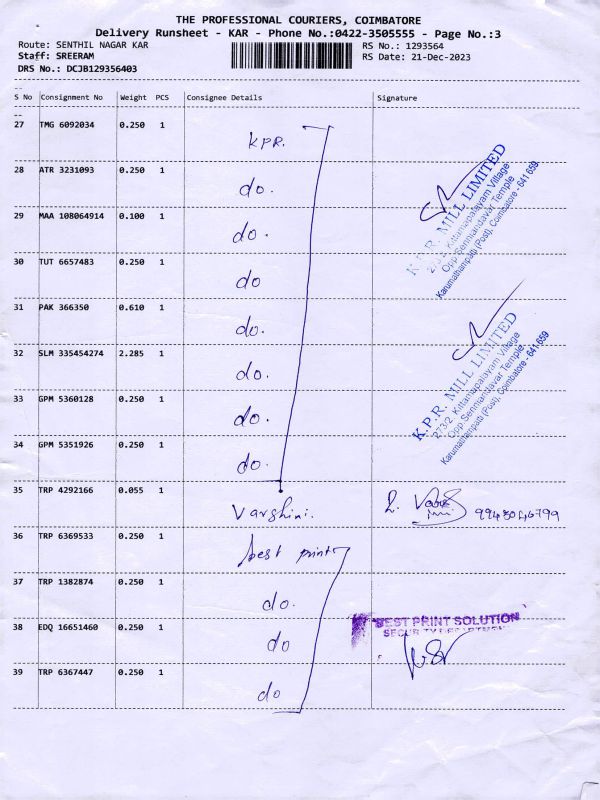 THE PROFESSIONAL COURIERS, COIMBATORE
Delivery Runsheet - KAR - Phone No.:0422-3505555 - Page No.:3
Route: SENTHIL NAGAR KAR
RS No.: 1293564
Staff: SREERAM
RS Date: 21-Dec-2023
DRS No.: DCJB129356403
S No Consignment No Weight PCS Consignee Details Signature
27 TMG 6092034 0.250 1 KPR.
28 ATR 3231093 0.250 1 do.
29 MAA 108064914 0.100 1 do.
30 TUT 6657483 0.250 1 do
31 PAK 366350 0.610 1 do.
32 SLM 335454274 2.285 1 do.
33 GPM 5360128 0.250 1 do.
34 GPM 5351926 0.250 1 do.
K.P.R. MILL LIMITED
273/2 Kittampalayam Village
Opp Senniandavar Temple
Karumathampatti (Post), Coimbatore - 641 659
K.P.R. MILL LIMITED
273/2 Kittampalayam Village
Opp Senniandavar Temple,
Karumathampatti (Post), Coimbatore - 641 659
35 TRP 4292166 0.055 1 Varshini.
36 TRP 6369533 0.250 1 best print
37 TRP 1382874 0.250 1 do.
38 EDQ 16651460 0.250 1 do
39 TRP 6367447 0.250 1 do
BEST PRINT SOLUTION
SECURITY DEPARTMENT